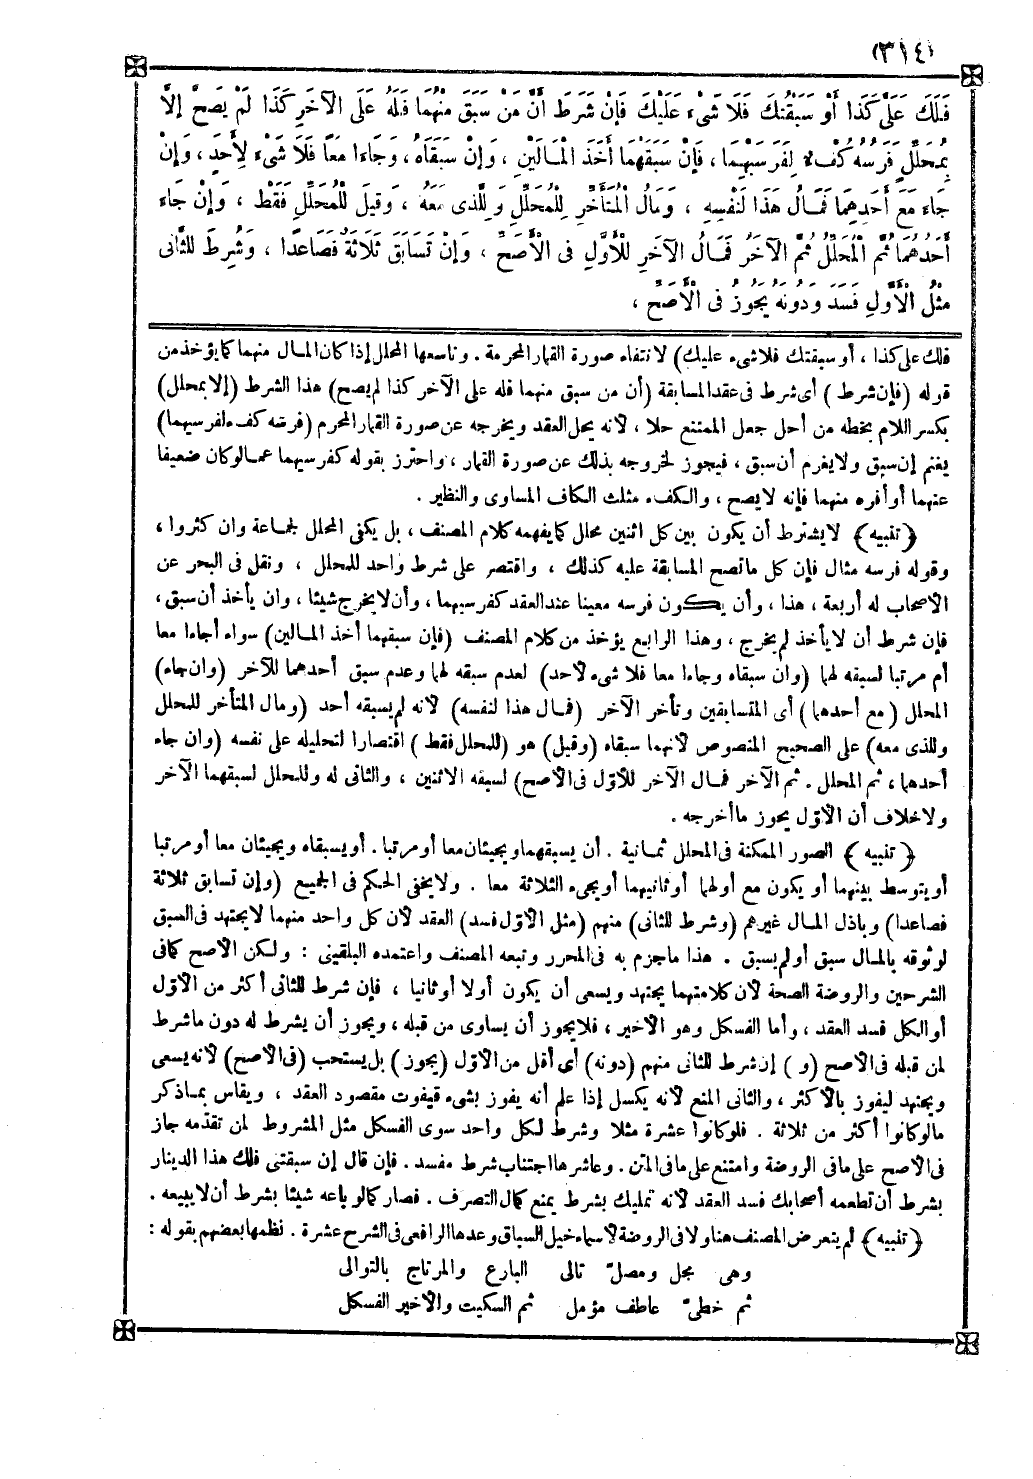 (٣١٤)
فَلَكَ عَلَىَّ كَذَا أَوْ سَبَقْتُكَ فَلَا شَىْءَ عَلَيْكَ فَإِنْ شَرَطَ أَنَّ مَنْ سَبَقَ مِنْهُمَا فَلَهُ عَلَى الْآخَرِ كَذَا لَمْ يَصِحَّ إلَّا
بِمُحَلِّلٍ فَرَسُهُ كُفْءٌ لِفَرَسَيْهِمَا ، فَإِنْ سَبَقَهُمَا أَخَذَ الْمَالَيْنِ ، وَإِنْ سَبَقَاهُ ، وَجَاءَا مَعًا فَلَا شَىْءَ لِأَحَدٍ ، وَإِنْ
جَاءَ مَعَ أَحَدِهِمَا فَمَالُ هَذَا لِنَفْسِهِ ، وَمَالُ الْمُتَأَخِّرِ لِلْمُحَلِّلِ وَلِلَّذِى مَعَهُ ، وَقِيلَ لِلْمُحَلِّلِ فَقَطْ ، وَإِنْ جَاءَ
أَحَدُهُمَا ثُمَّ الْمُحَلِّلُ ثُمَّ الْآخَرُ فَمَالُ الْآخَرِ لِلْأَوَّلِ فِى الْأَصَحِّ ، وَإِنْ تَسَابَقَ ثَلَاثَةٌ فَصَاعِدًا ، وَشُرِطَ لِلثَّانِى
مِثْلُ الْأَوَّلِ فَسَدَ وَدُونَهُ يَجُوزُ فِى الْأَصَحِّ ،
فلك على كذا ، أو سبقتك فلا شىء عليك) لانتفاء صورة القمار المحرمة . وتاسعها المحلل إذا كان المال منهما كما يؤخذ من
قوله (فإن شرط) أى شرط فى عقد المسابقة (أن من سبق منهما فله على الآخر كذا لم يصح) هذا الشرط (إلا بمحلل)
بكسر اللام بخطه من أحل جعل الممتنع حلا ، لأنه يحل العقد ويخرجه عن صورة القمار المحرم (فرسه كفء لفرسيهما)
يغنم إن سبق ولا يغرم أن سبق ، فيجوز لخروجه بذلك عن صورة القمار ، واحترز بقوله كفرسيهما عما لو كان ضعيفا
عنهما أو أفره منهما فإنه لا يصح ، والكفء مثلث الكاف المساوى والنظير .
﴿تنبيه﴾ لا يشترط أن يكون بين كل اثنين محلل كما يفهمه كلام المصنف ، بل يكفى المحلل لجماعة وان كثروا ،
وقوله فرسه مثال فإن كل ما تصح المسابقة عليه كذلك ، واقتصر على شرط واحد للمحلل ، ونقل فى البحر عن
الأصحاب له أربعة ، هذا ، وأن يكون فرسه معينا عند العقد كفرسيهما ، وأن لا يخرج شيئا ، وان يأخذ أن سبق ،
فإن شرط أن لا يأخذ لم يخرج ، وهذا الرابع يؤخذ من كلام المصنف (فإن سبقهما أخذ المالين) سواء أجاءا معا
أم مرتبا لسبقه لهما (وان سبقاه وجاءا معا فلا شىء لأحد) لعدم سبقه لهما وعدم سبق أحدهما للآخر (وان جاء)
المحلل (مع أحدهما) أى المتسابقين وتأخر الآخر (فمال هذا لنفسه) لأنه لم يسبقه أحد (ومال المتأخر للمحلل
وللذى معه) على الصحيح المنصوص لأنهما سبقاه (وقيل) هو (للمحلل فقط) اقتصارا لتحليله على نفسه (وان جاء
أحدهما ، ثم المحلل . ثم الآخر فمال الآخر للأول فى الأصح) لسبقه الاثنين ، والثانى له وللمحلل لسبقهما الآخر
ولا خلاف أن الأول يحوز ما أخرجه .
﴿تنبيه﴾ الصور الممكنة فى المحلل ثمانية . أن يسبقهما ويجيئان معا أو مرتبا . أو يسبقاه ويجيئان معا أو مرتبا
أو يتوسط بينهما أو يكون مع أولهما أو ثانيهما أو يجىء الثلاثة معا . ولا يخفى الحكم فى الجميع (وإن تسابق ثلاثة
فصاعدا) وباذل المال غيرهم (وشرط للثانى) منهم (مثل الأول فسد) العقد لأن كل واحد منهما لا يجتهد فى السبق
لوثوقه بالمال سبق أو لم يسبق . هذا ما جزم به فى المحرر وتبعه المصنف واعتمده البلقينى : ولكن الأصح كما فى
الشرحين والروضة الصحة لأن كلا منهما يجتهد ويسعى أن يكون أولا أو ثانيا ، فإن شرط للثانى أكثر من الأول
أو الكل فسد العقد ، وأما الفسكل وهو الأخير ، فلا يجوز أن يساوى من قبله ، ويجوز أن يشرط له دون ما شرط
لمن قبله فى الأصح (و) إن شرط للثانى منهم (دونه) أى أقل من الأول (يجوز) بل يستحب (فى الأصح) لأنه يسعى
ويجتهد ليفوز بالأكثر ، والثانى المنع لأنه يكسل إذا علم أنه يفوز بشىء فيفوت مقصود العقد ، ويقاس بما ذكر
ما لو كانوا أكثر من ثلاثة . فلو كانوا عشرة مثلا وشرط لكل واحد سوى الفسكل مثل المشروط لمن تقدمه جاز
فى الأصح على ما فى الروضة وامتنع على ما فى المتن . وعاشرها اجتناب شرط مفسد . فإن قال إن سبقتنى فلك هذا الدينار
بشرط أن تطعمه أصحابك فسد العقد لأنه تمليك بشرط يمنع كمال التصرف . فصار كما لو باعه شيئا بشرط أن لا يبيعه .
﴿تنبيه﴾ لم يتعرض المصنف هنا ولا فى الروضة لأسماء خيل السباق وعدها الرافعى فى الشرح عشرة . نظمها بعضهم بقوله :
وهى مجل ومصلّ تالى    البارع والمرتاج بالتوالى
ثم خطىّ عاطف مؤمل    ثم السكيت والأخير الفسكل